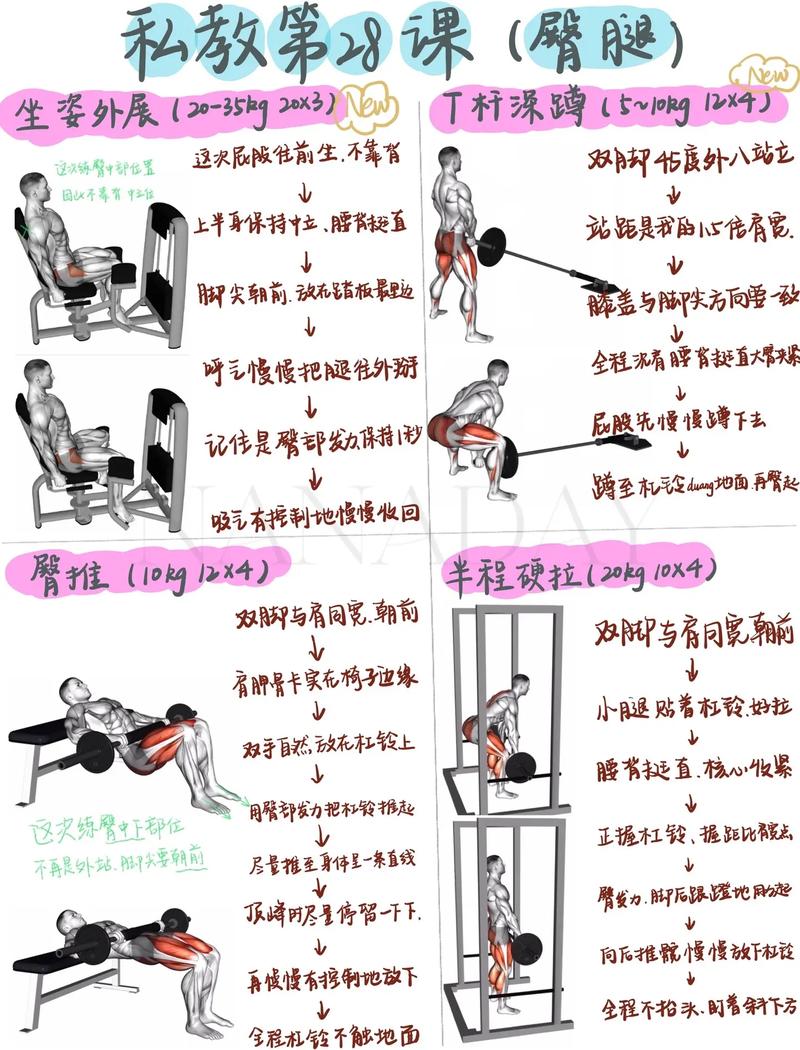 私教第28课（臀腿）
坐姿外展（20-35kg 20x3）
New
这次练臀中部位置
因此不靠背 中立位
这次屁股往前坐、不靠背
上半身保持中立、腰背挺直
脚尖朝前、放在踏板最里边
呼气慢慢把腿往外掰
记住是臀部发力、保持1秒
吸气有控制地慢慢收回
T杆深蹲（5~10kg 12x4）
New
双脚45度外八站立
站距是我的1.5倍肩宽、
膝盖与脚尖方向要一致
全程沉肩腰背挺直大臂夹紧
屁股先慢慢蹲下去
蹲至杠铃duang地面、再臀起
NANADAY
臀推（10kg 12x4）
双脚与肩同宽、朝前
肩胛骨卡实在椅子边缘
双手自然放在杠铃上
用臀部发力把杠铃推起
尽量推至身体呈一条直线
顶峰时尽量停留一下下、
再慢慢有控制地放下
全程杠铃不触地面
这次练臀中下部位
不再是外站、脚尖要朝前
半程硬拉（20kg 10x4）
双脚与肩同宽、朝前
小腿贴着杠铃、好拉
腰背挺直、核心收紧
正握杠铃、握距比肩宽点
臀发力、脚后跟蹬地
向后推髋、慢慢放下杠铃
全程不抬头、盯着斜下方